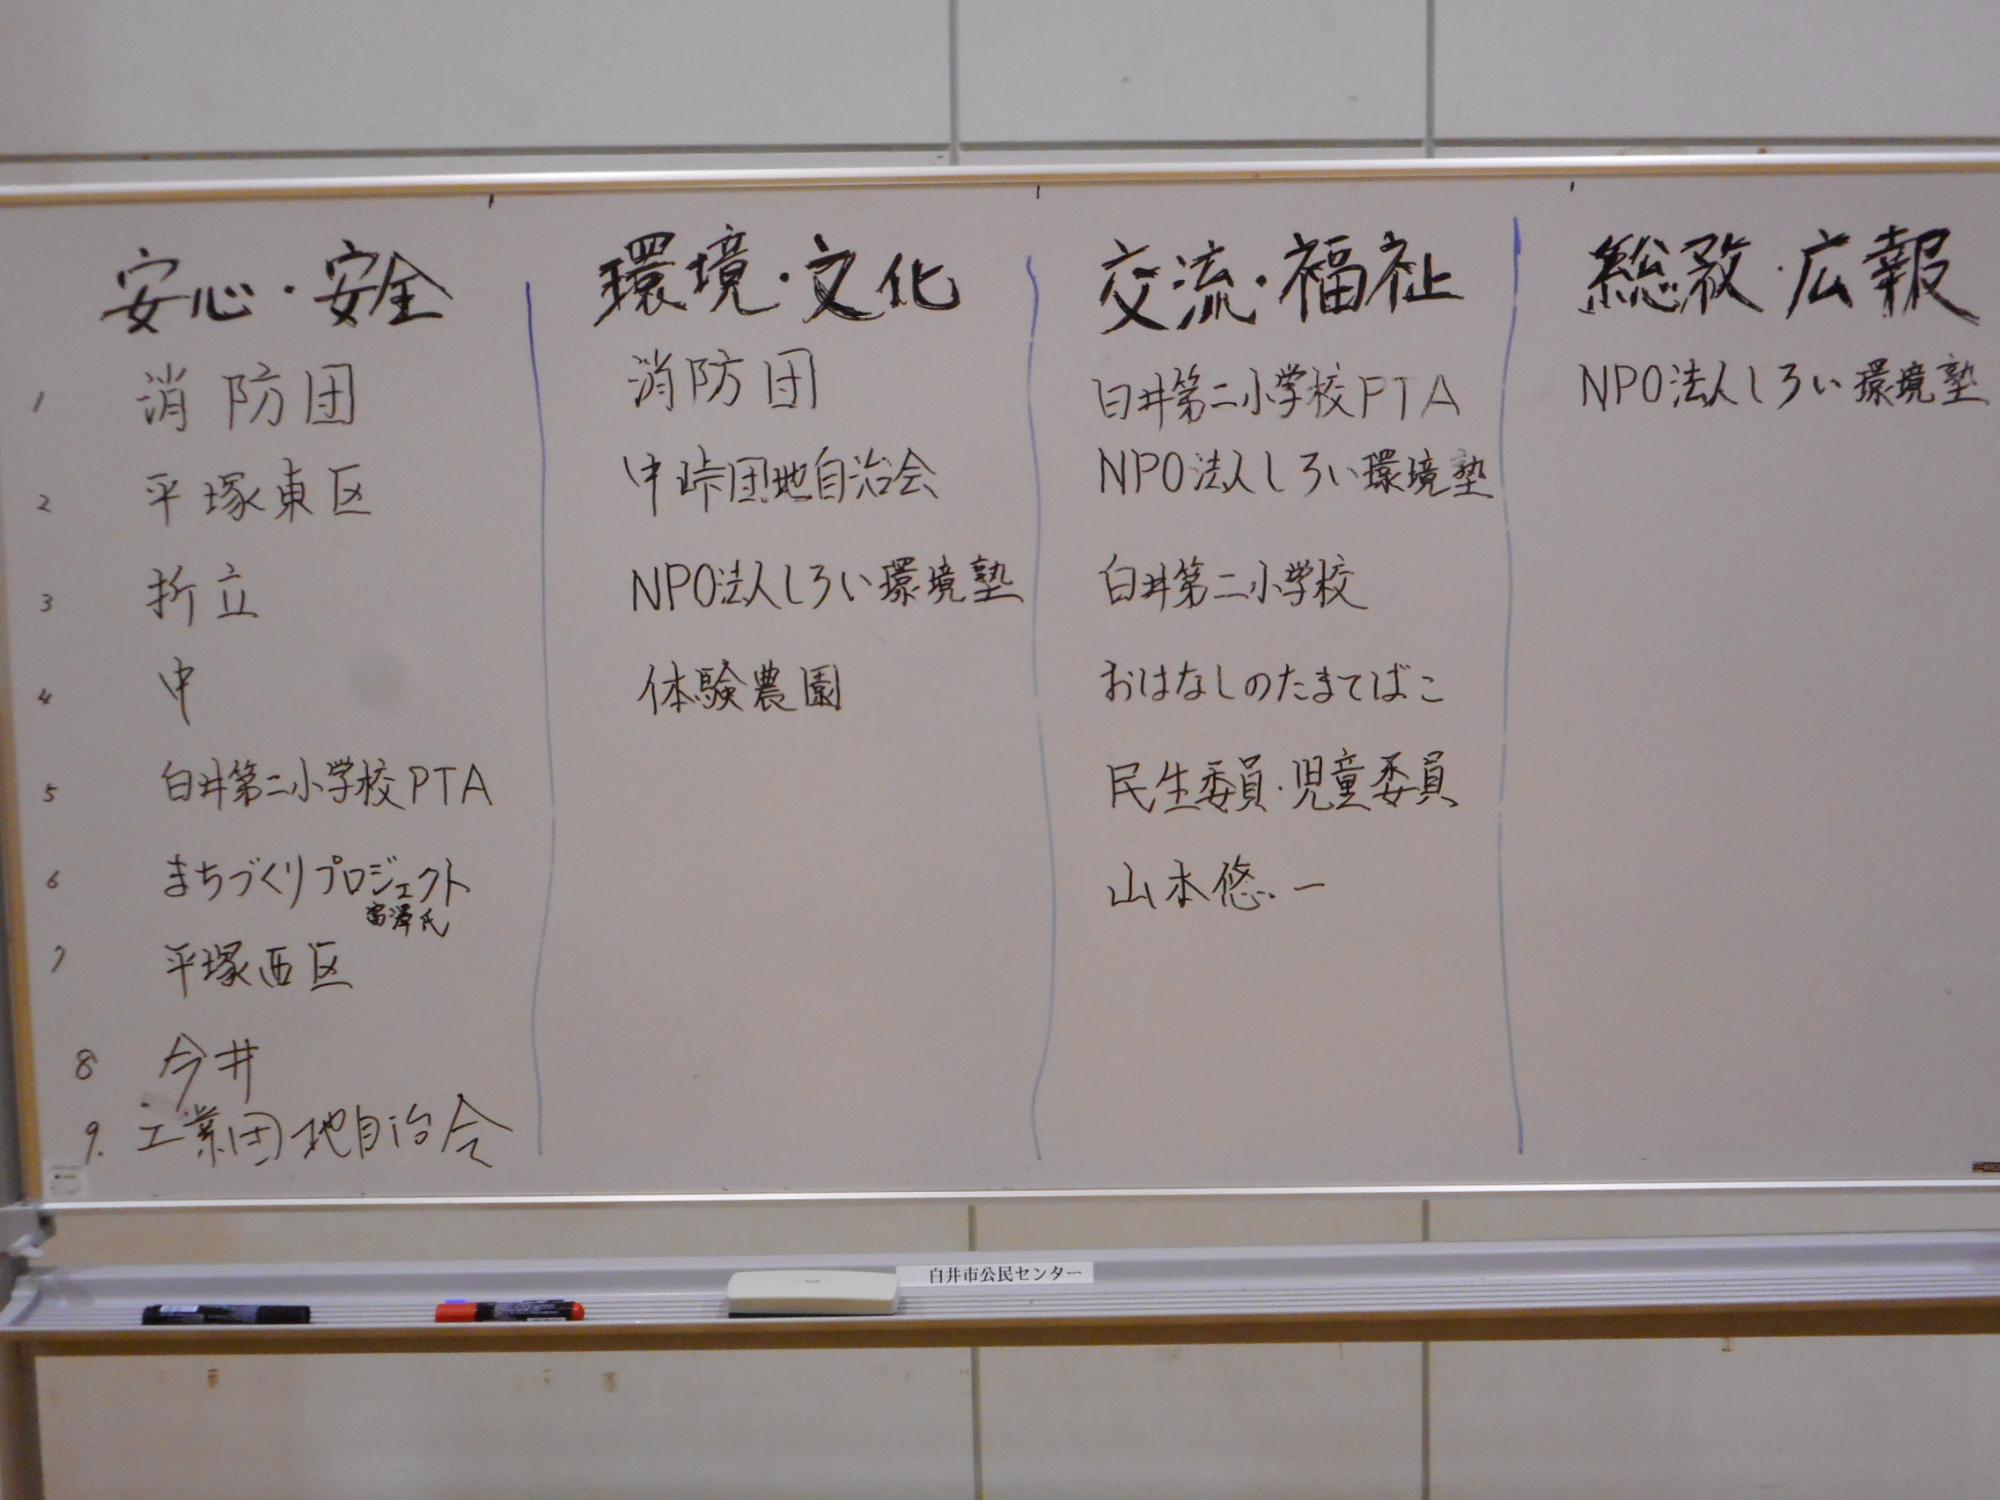 安心・安全
1 消防団
2 平塚東区
3 折立
4 中
5 白井第二小学校PTA
6 まちづくりプロジェクト
富澤氏
7 平塚西区
8 今井
9. 工業団地自治会
環境・文化
消防団
中峠団地自治会
NPO法人しろい環境塾
体験農園
交流・福祉
白井第二小学校PTA
NPO法人しろい環境塾
白井第二小学校
おはなしのたまてばこ
民生委員・児童委員
山本悠一
総務・広報
NPO法人しろい環境塾
白井市公民センター